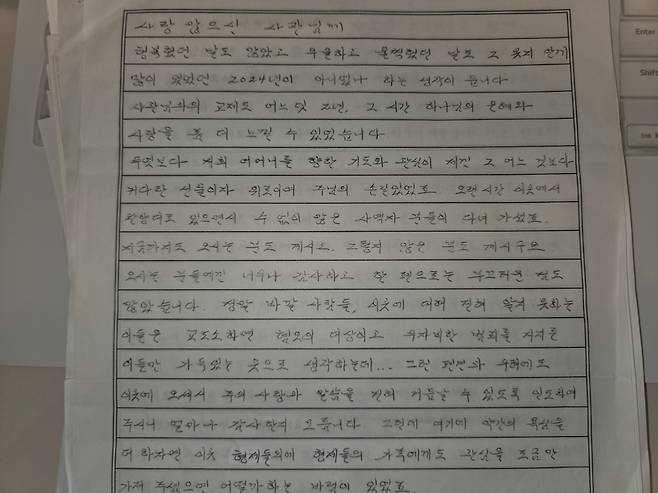 사랑 많으신 사관님께
행복했던 날도 많았고 우울하고 울적했던 날도 그 못지 않게
많이 있었던 2024년이 아니었나 하는 생각이 듭니다.
사관님과의 교제도 어느덧 2년, 그 시간 하나님의 은혜와
사랑을 좀 더 느낄 수 있었습니다
무엇보다 저희 어머니를 향한 기도와 관심이 제겐 그 어느 것보다
커다란 선물이자 위로이며 주님의 손길있었죠 오랜시간 이곳에서
있으면서 수 없이 많은 사역자 분들이 다녀 가셨죠.
지금까지도 오시는 분도 계시고. 그렇지 않은 분도 계시구요
오시는 분들에겐 너무나 감사하고 한 편으로는 부끄러운 점도
많았습니다. 정말 바깥 사람들, 이곳에 대해 전혀 알지 못하는
이들은 교도소하면 혐오의 대상이고 무자비한 범죄를 저지른
이들만 가득있는 곳으로 생각하는데... 그런 편견과 우려에도
이곳에 오셔서 주의 사랑과 말씀을 전해 거듭날 수 있도록 인도하여
주시니 얼마나 감사한지 모릅니다 그런데 여기에 약간의 욕심을
더 하자면 이곳 형제들외에 형제들의 가족에게도 관심을 조금만
가져 주셨으면 어떨까하는 바램이 있었죠